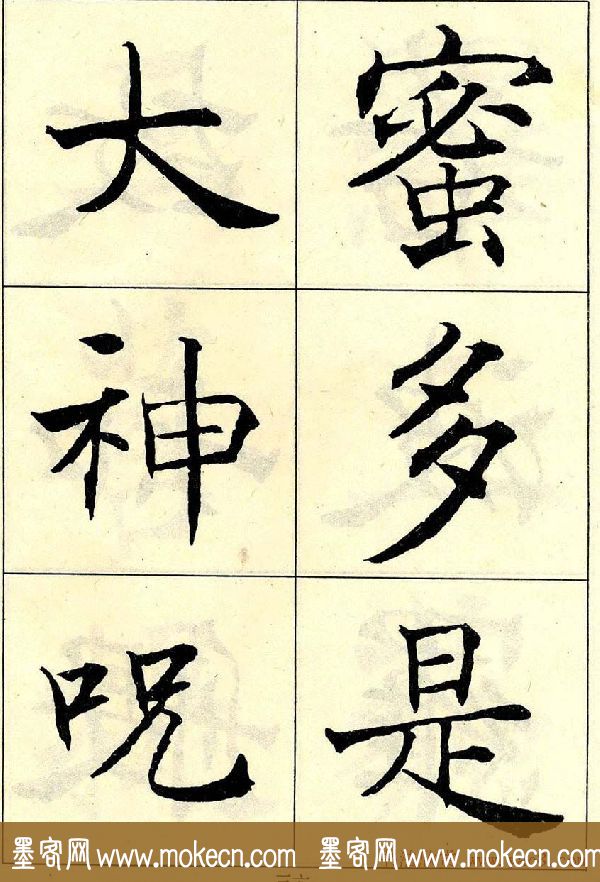 蜜多是
大神呪
墨客网 www.mokecn.com 墨客网 www.mokecn.com